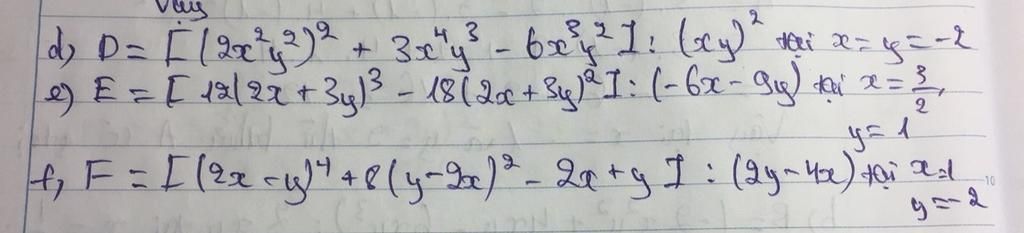 Vậy
d) D = [(2x²y²)² + 3x⁴y³ - 6x³y²] : (xy)² tại x = y = -2
e) E = [12(2x + 3y)³ - 18(2x + 3y)²] : (-6x - 9y) tại x = 3/2,
y = 1
f, F = [(2x - y)⁴ + 8(y - 2x)² - 2x + y] : (2y - 4x) tại x = 1
y = -2